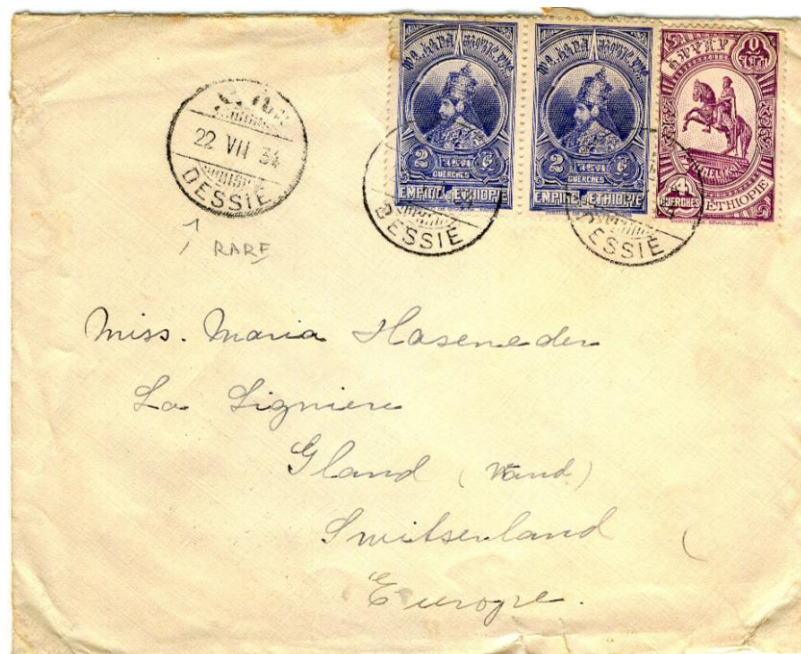 22 VII 34
DESSIE
RARE
2
GUERCHES
EMPIRE ETHIOPIE
2
GUERCHES
EMPIRE ETHIOPIE
GUERCHES
ETHIOPIE
DESSIE
DESSIE
Miss. Maria Haseneder
La Ligniere
Gland (Vaud)
Switserland
Europe.